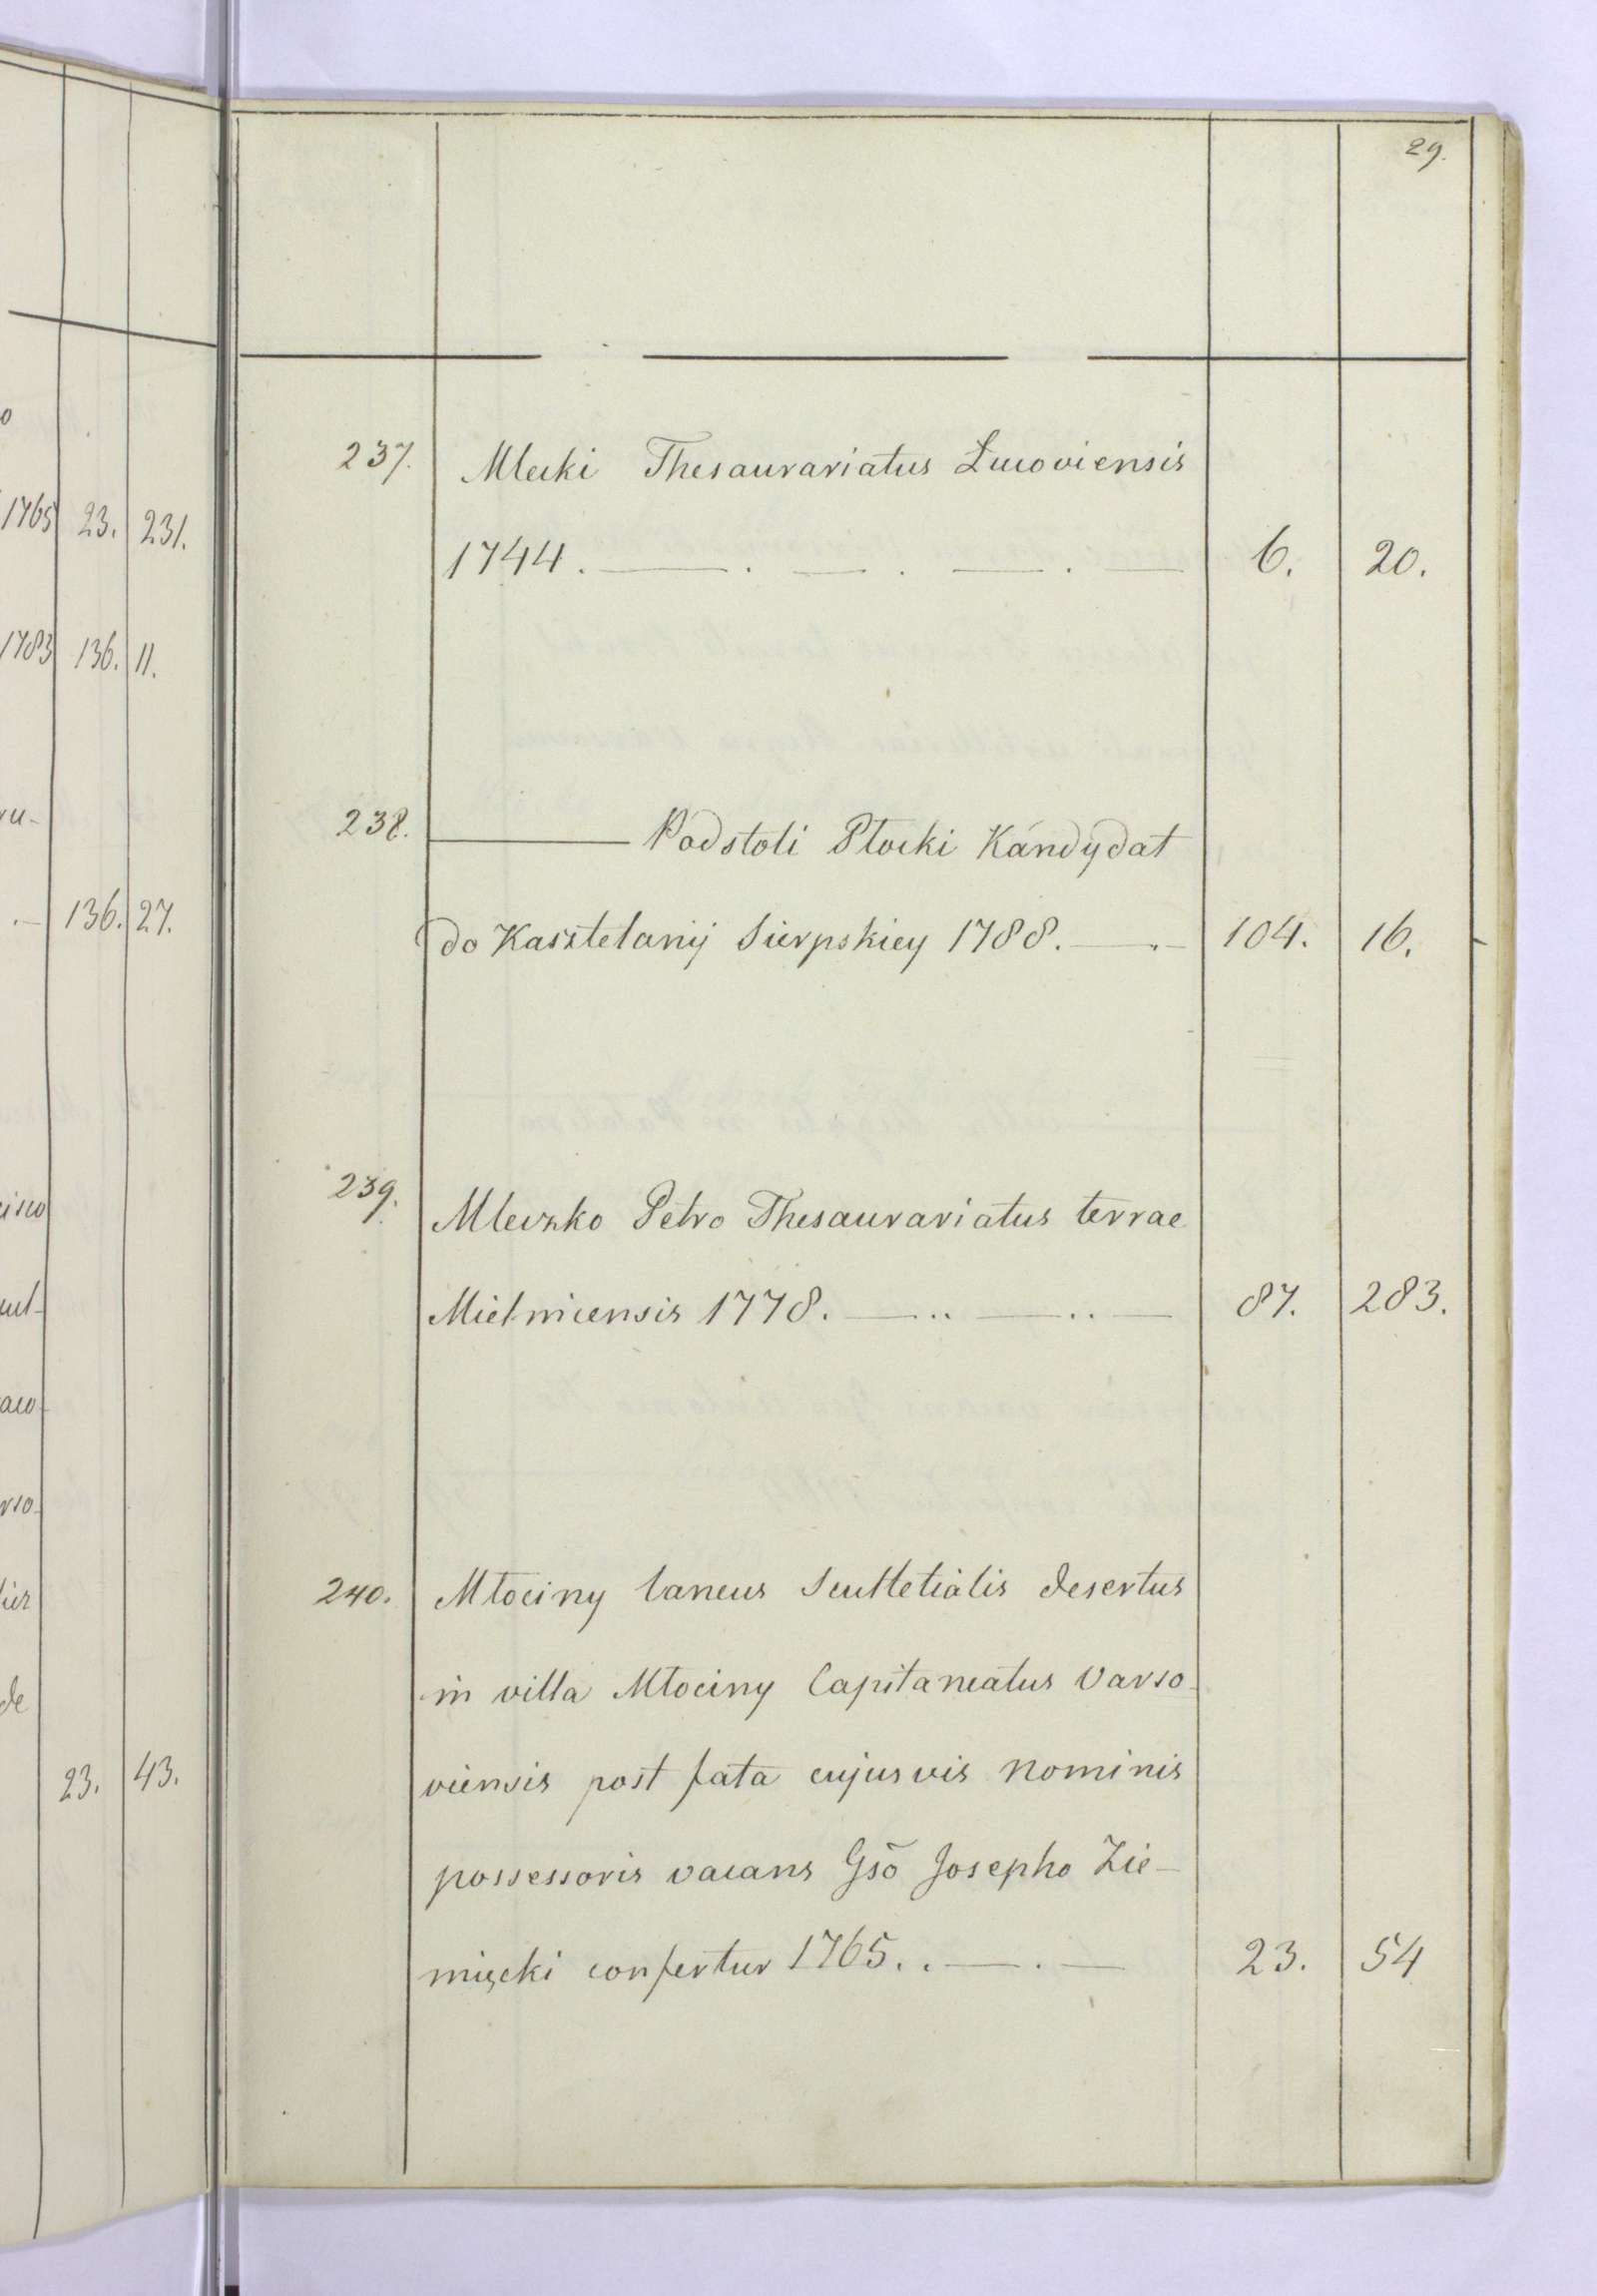 29.
o
1765 23. 231.
1783 136. 11.
ru-
136. 27.
cisco
aco
vso-
de
23. 43.
237. Mlecki Thesaurariatus Lucoviensis
1744. 6. 20.
238. Podstoli Płocki Kandydat
do Kasztelanij Sierpskiey 1788. 104. 16.
239. Mleczko Petro Thesaurariatus terrae
Mielnicensis 1778. 87. 283.
240. Młociny laneus Scultetialis desertus
in villa Młociny Capitaneatus Varso-
viensis post fata cujusvis nominis
possessoris vacans Gsō Josepho Zie-
mięcki confertur 1765. 23. 54